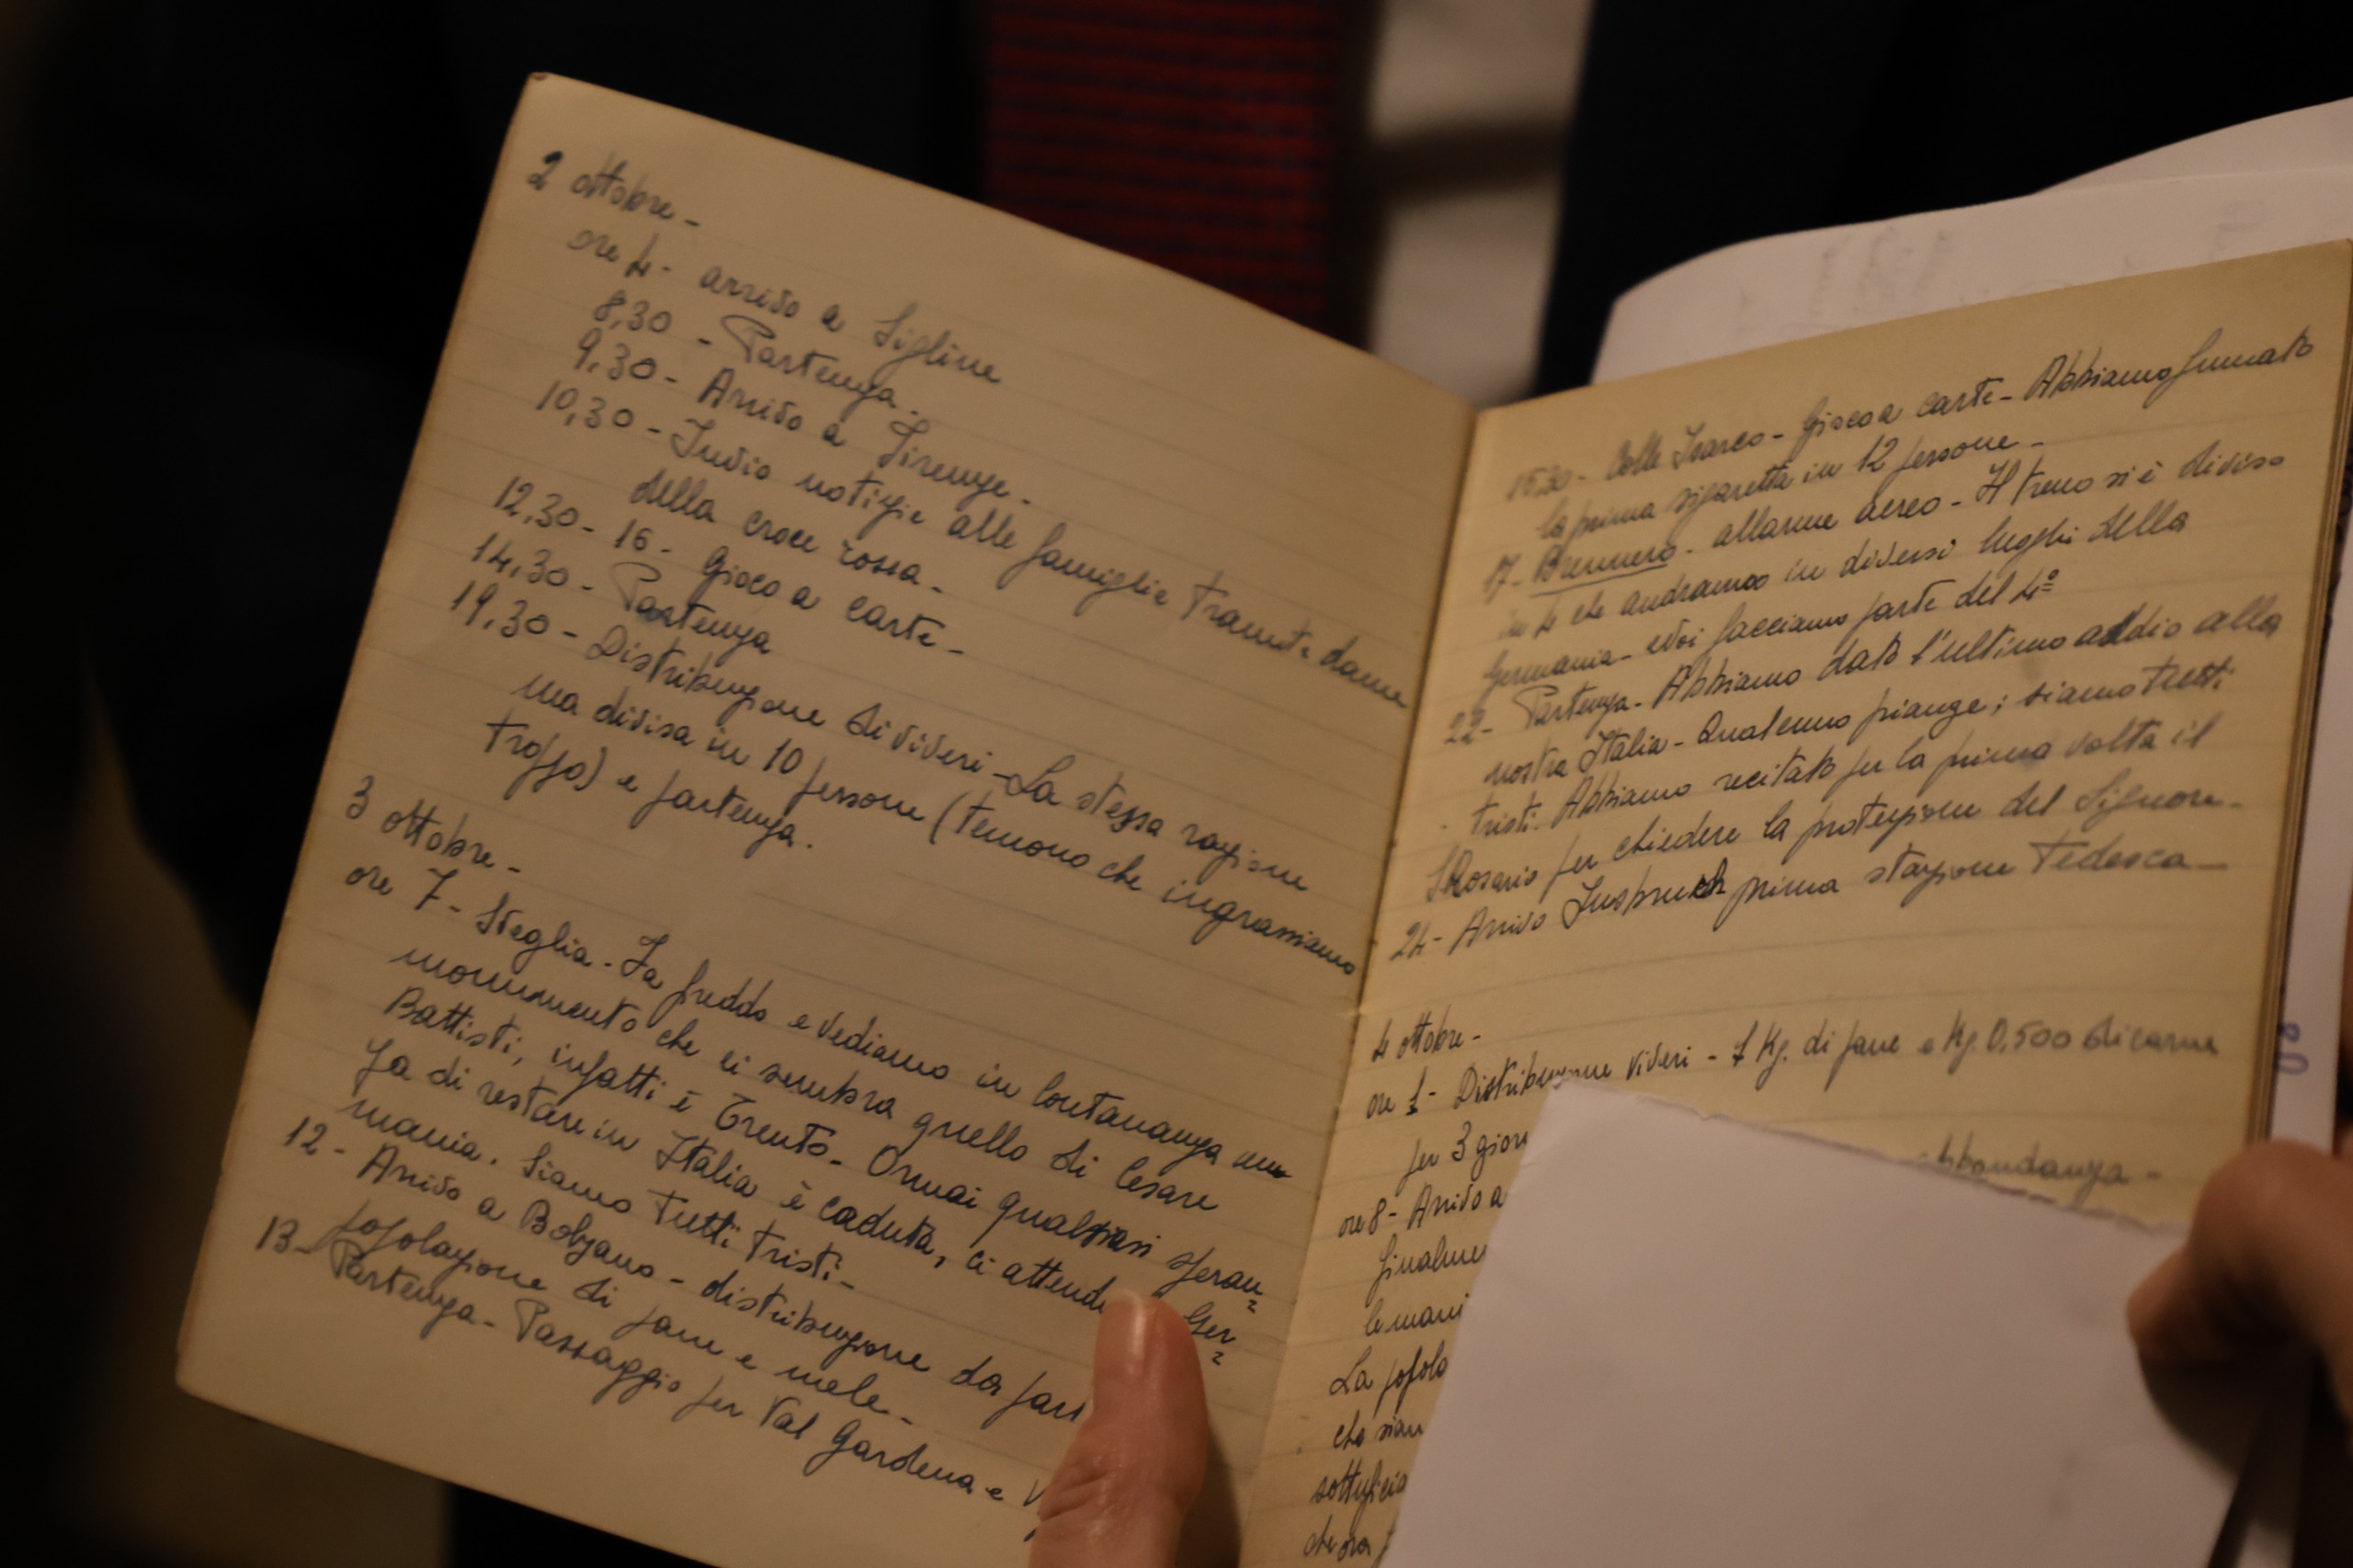 2 ottobre -
ore 4 - arrivo a Sigline
8,30 - Partenza.
9,30 - Arrivo a Firenze -
10,30 - Invio notizie alle famiglie tramite dame
della croce rossa -
12,30 - 16 - Gioco a carte -
14,30 - Partenza
19,30 - Distribuzione di viveri - La stessa razione
ma divisa in 10 persone (temono che ingrassiamo
troppo) e partenza.
3 ottobre -
ore 7 - Sveglia - Fa freddo e vediamo in lontananza un
monumento che ci sembra quello di Cesare
Battisti, infatti è Trento - Ormai qualsiasi speran=
za di restare in Italia è caduta, ci attende Ger=
mania. Siamo tutti tristi -
12 - Arrivo a Bolzano - distribuzione da par
popolazione di pane e mele -
13 - Partenza - Passaggio per Val Gardena e
15,30 - Colle Isarco - Gioco a carte - Abbiamo fumato
la prima sigaretta in 12 persone -
17 - Brennero - allarme aereo - Il treno si è diviso
in 4 che andranno in diversi luoghi della
Germania - Noi facciamo parte del 4º
22 - Partenza - Abbiamo dato l'ultimo addio alla
nostra Italia - Qualcuno piange; siamo tutti
tristi. Abbiamo recitato per la prima volta il
S.Rosario per chiedere la protezione del Signore -
24 - Arrivo Insbruch prima stazione Tedesca -
4 ottobre -
ore 1 - Distribuzione viveri - 1 Kg. di pane e Kg. 0,500 di carne
per 3 gior
abbondanza -
ore 8 - Arrivo a
finalme
le mani
La popola
che siam
sottuficia
che ora